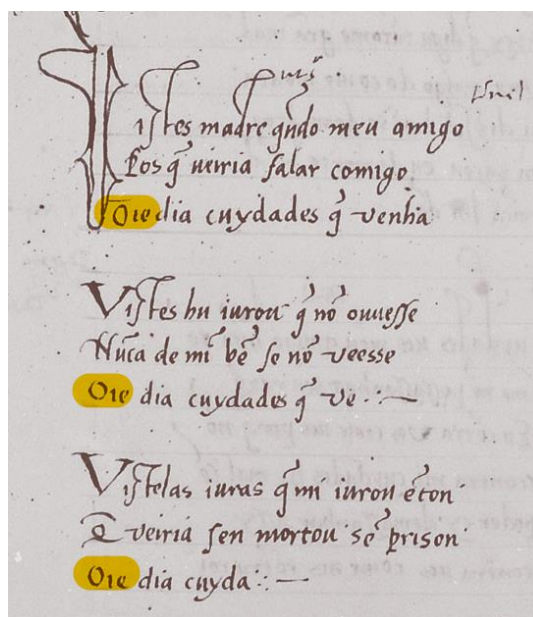 Vistes madre qñdo meu amigo
Pos q̃ veiria falar comigo
Oie dia cuydades q̃ venha
Vistes hu iurou q̃ nõ ouuesse
Nũca de mi bẽ se nõ veesse
Oie dia cuydades q̃ vẽ :—
Vistelas iuras q̃ mi iurou ẽton
Q̃ veiria sen mortou sẽ prison
Oie dia cuyda :—